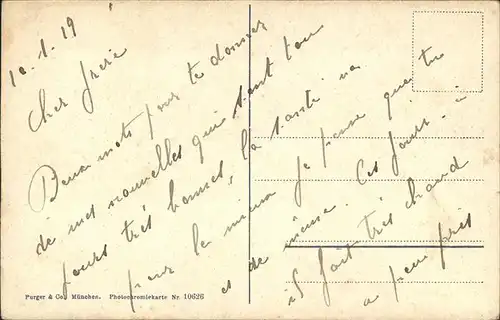 10.1.19
Cher frère
Deux mots pour te donner
de mes nouvelles qui sont tou
jours très bonnes, la santé va
pour le mieux je pense que tu
es de même. Ces jours-ci
il fait très chaud
a peu près
Purger & Co., München. Photochromiekarte Nr. 10626